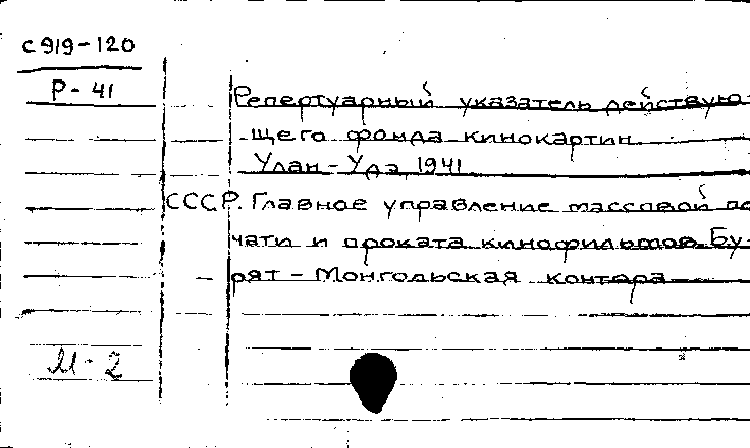 С919-120
Р-41
Репертуарный указатель действую-
щего фонда кинокартин.
Улан-Удэ, 1941
СССР. Главное управление массовой пе
чати и проката кинофильмов. Бу-
рят-Монгольская контора
М-2